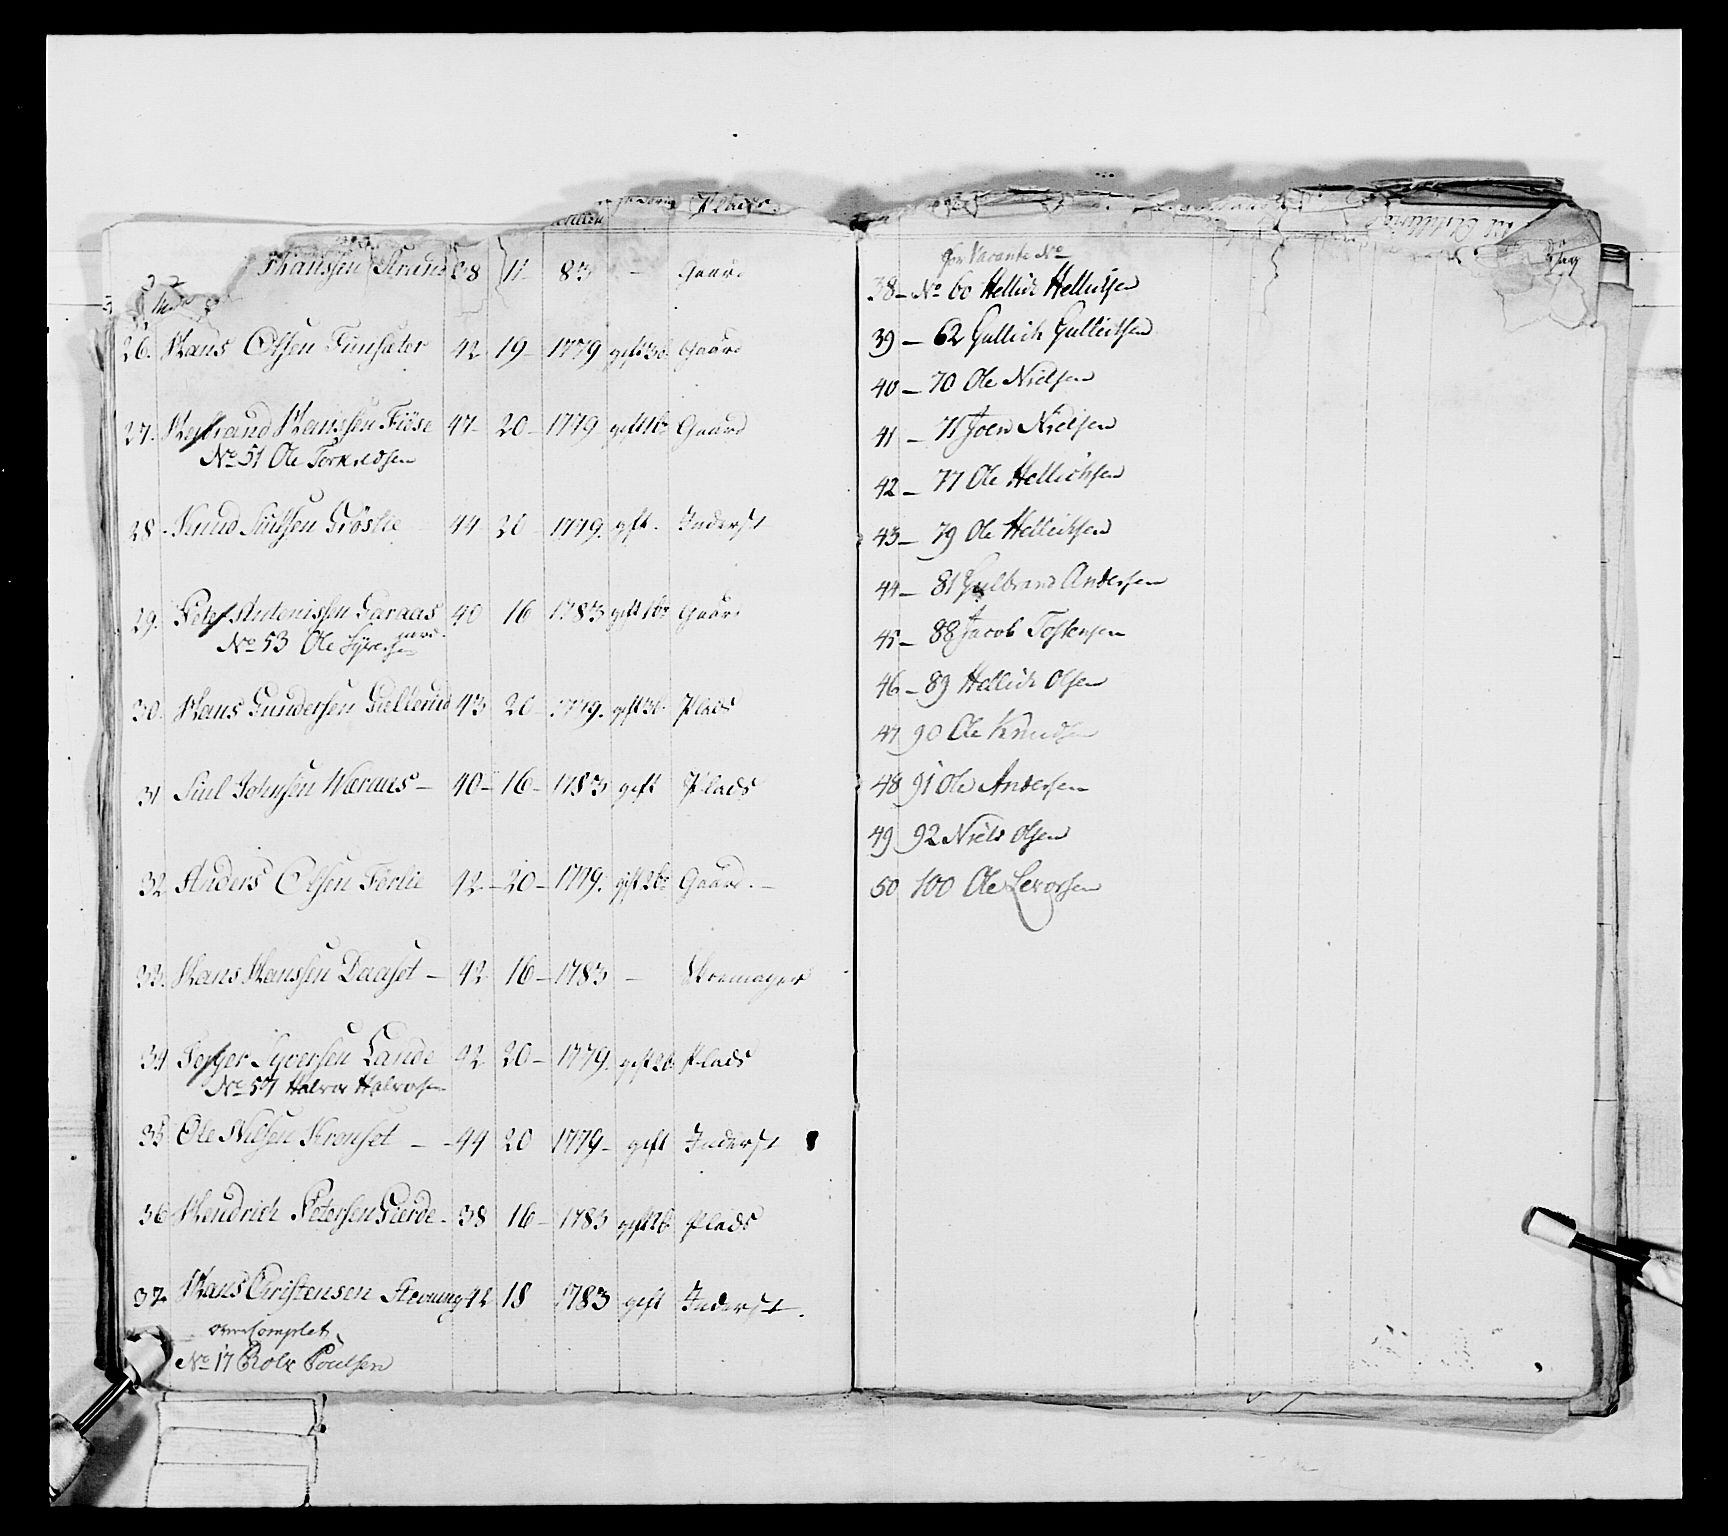 Hanssen Strand 28 11 83 — Gaard
26. Hans Olsen Funsater 42 19 — 1779 gift 3b. Gaard
27. Hans­sen Fiöse 47 — 20 — 1779 gift 1b. Gaard
No 51 Ole Torkildsen
28. Knud Siulsen 44 20 1779. gift. Inderst
29. Peter Antonissen Garaas 40 16 1783 gift 1b. Gaard
No 53 Ole Syversen
30. Hans Gundersen Gullerud 43 20 — 1779. gift 3b. Plads
31 Siul Johnsen Weraas — 40 — 16 — 1783 gift Plads
32. Anders Olsen Förlie 42 — 20 — 1779. gift 2b. Gaard. —
33. Hans Hanssen Daaset — 42 16 — 1783 — Skoemager
34 Syversen Lande 42 20 — 1779. gift 2b. Plads
No 57 Halvor Halvorsen
35 Ole Nilsen — 44 20 1779 — gift Inderst
36 Hendrich Petersen Gierde — 38 16 — 1783 gift 1b. Plads
37. Hans Christensen 42 18 1783 gift Inderst.
Complet
No 17 Rolv Poulsen
for Vacante No
38 — No 60 Hellich Hellichsen
39 — 62 Gullich Gullichsen
40 — 70 Ole Nielsen
41 — 71 Joen Nielsen
42 — 77 Ole Hellichsen
43 — 79 Ole Hellichsen
44 — 81 Gulbrand Andersen
45 — 88 Jacob Tostensen
46 — 89 Hellich Olsen
47 90 Ole Knudsen
48 91 Ole Andersen
49 92 Niels Olsen
50 100 Ole Levorsen